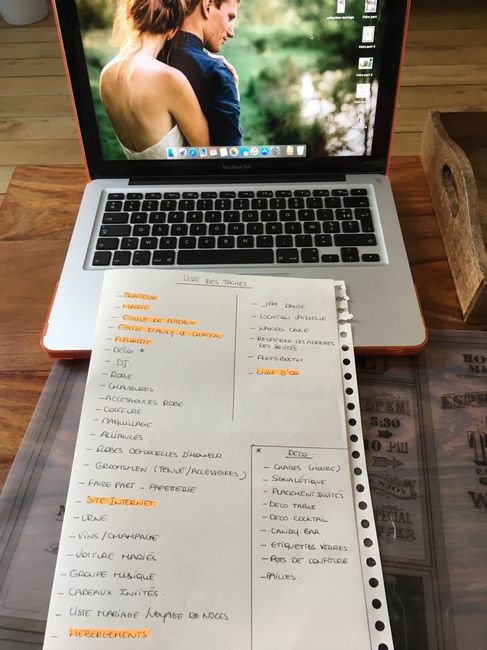 Faire part
Faire part 2
MacBook Pro
LISTE DES TACHES
- TRAITEUR
- MAIRIE
- EGLISE DE PUTEAUX
- EGLISE D'AUXY-LE-CHATEAU
- FLEURISTE
- DÉCO *
- DJ
- ROBE
- CHAUSSURES
- ACCESSOIRES ROBE
- COIFFURE
- MAQUILLAGE
- ALLIANCES
- ROBES DEMOISELLES D'HONNEUR
- GROOMSMEN (TENUE/ACCESSOIRES)
- FAIRE PART - PAPETERIE
- SITE INTERNET
- URNE
- VINS/CHAMPAGNE
- VOITURE MARIÉS
- GROUPE MUSIQUE
- CADEAUX INVITÉS.
- LISTE MARIAGE/VOYAGE DE NOCES
- HÉBERGEMENTS
- JEUX DANSE
- LOCATION VAISSELLE
- NAKED CAKE
- RÉCUPÉRER LES ADRESSES
DES INVITÉS.
- PHOTOBOOTH
- LIVRE D'OR
* DECO:
- CHAISES (HOUSSE)
- SIGNALÉTIQUE
- PLACEMENT INVITÉS
- DECO TABLE
- DECO COCKTAIL
- CANDY BAR
- ETIQUETTES VERRES
- POTS DE CONFITURE
- PAILLES.
OPEN
5:30
10 PM